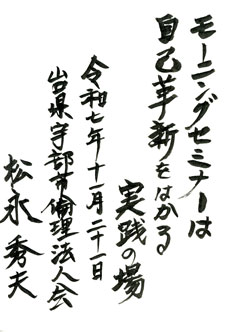 モーニングセミナーは
自己革新をはかる
実践の場
令和七年十一月二十一日
山口県宇部市倫理法人会
松永秀夫